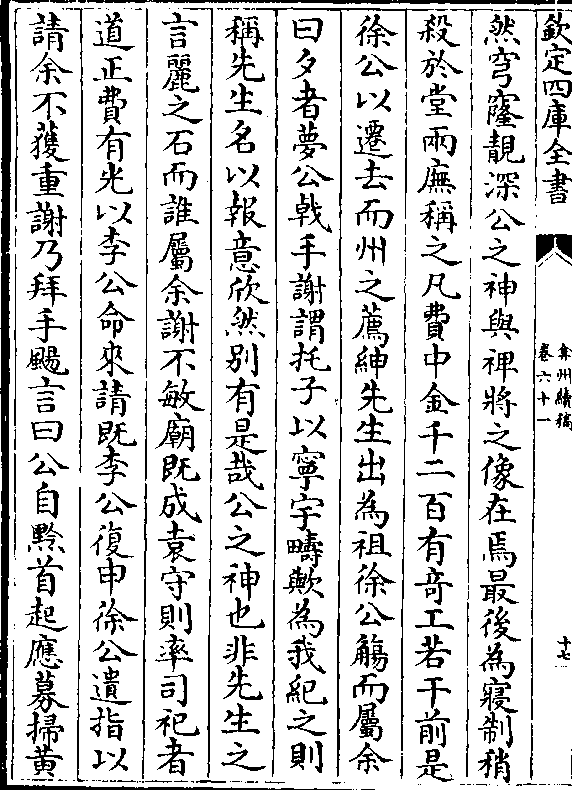 欽定四庫全書
弇州續稿
卷六十一
十七
然穹窿靚深公之神與裨將之像在焉最後為寢制稍
殺於堂兩廡稱之凡費中金千二百有竒工若干前是
徐公以遷去而州之薦紳先生出為祖徐公觴而屬余
曰夕者夢公戟手謝謂托子以寧宇疇歟為我紀之則
稱先生名以報意欣然别有是哉公之神也非先生之
言麗之石而誰屬余謝不敏廟既成袁守則率司祀者
道正費有光以李公命來請既李公復申徐公遺指以
請余不獲重謝乃拜手颺言曰公自黔首起應募掃黄